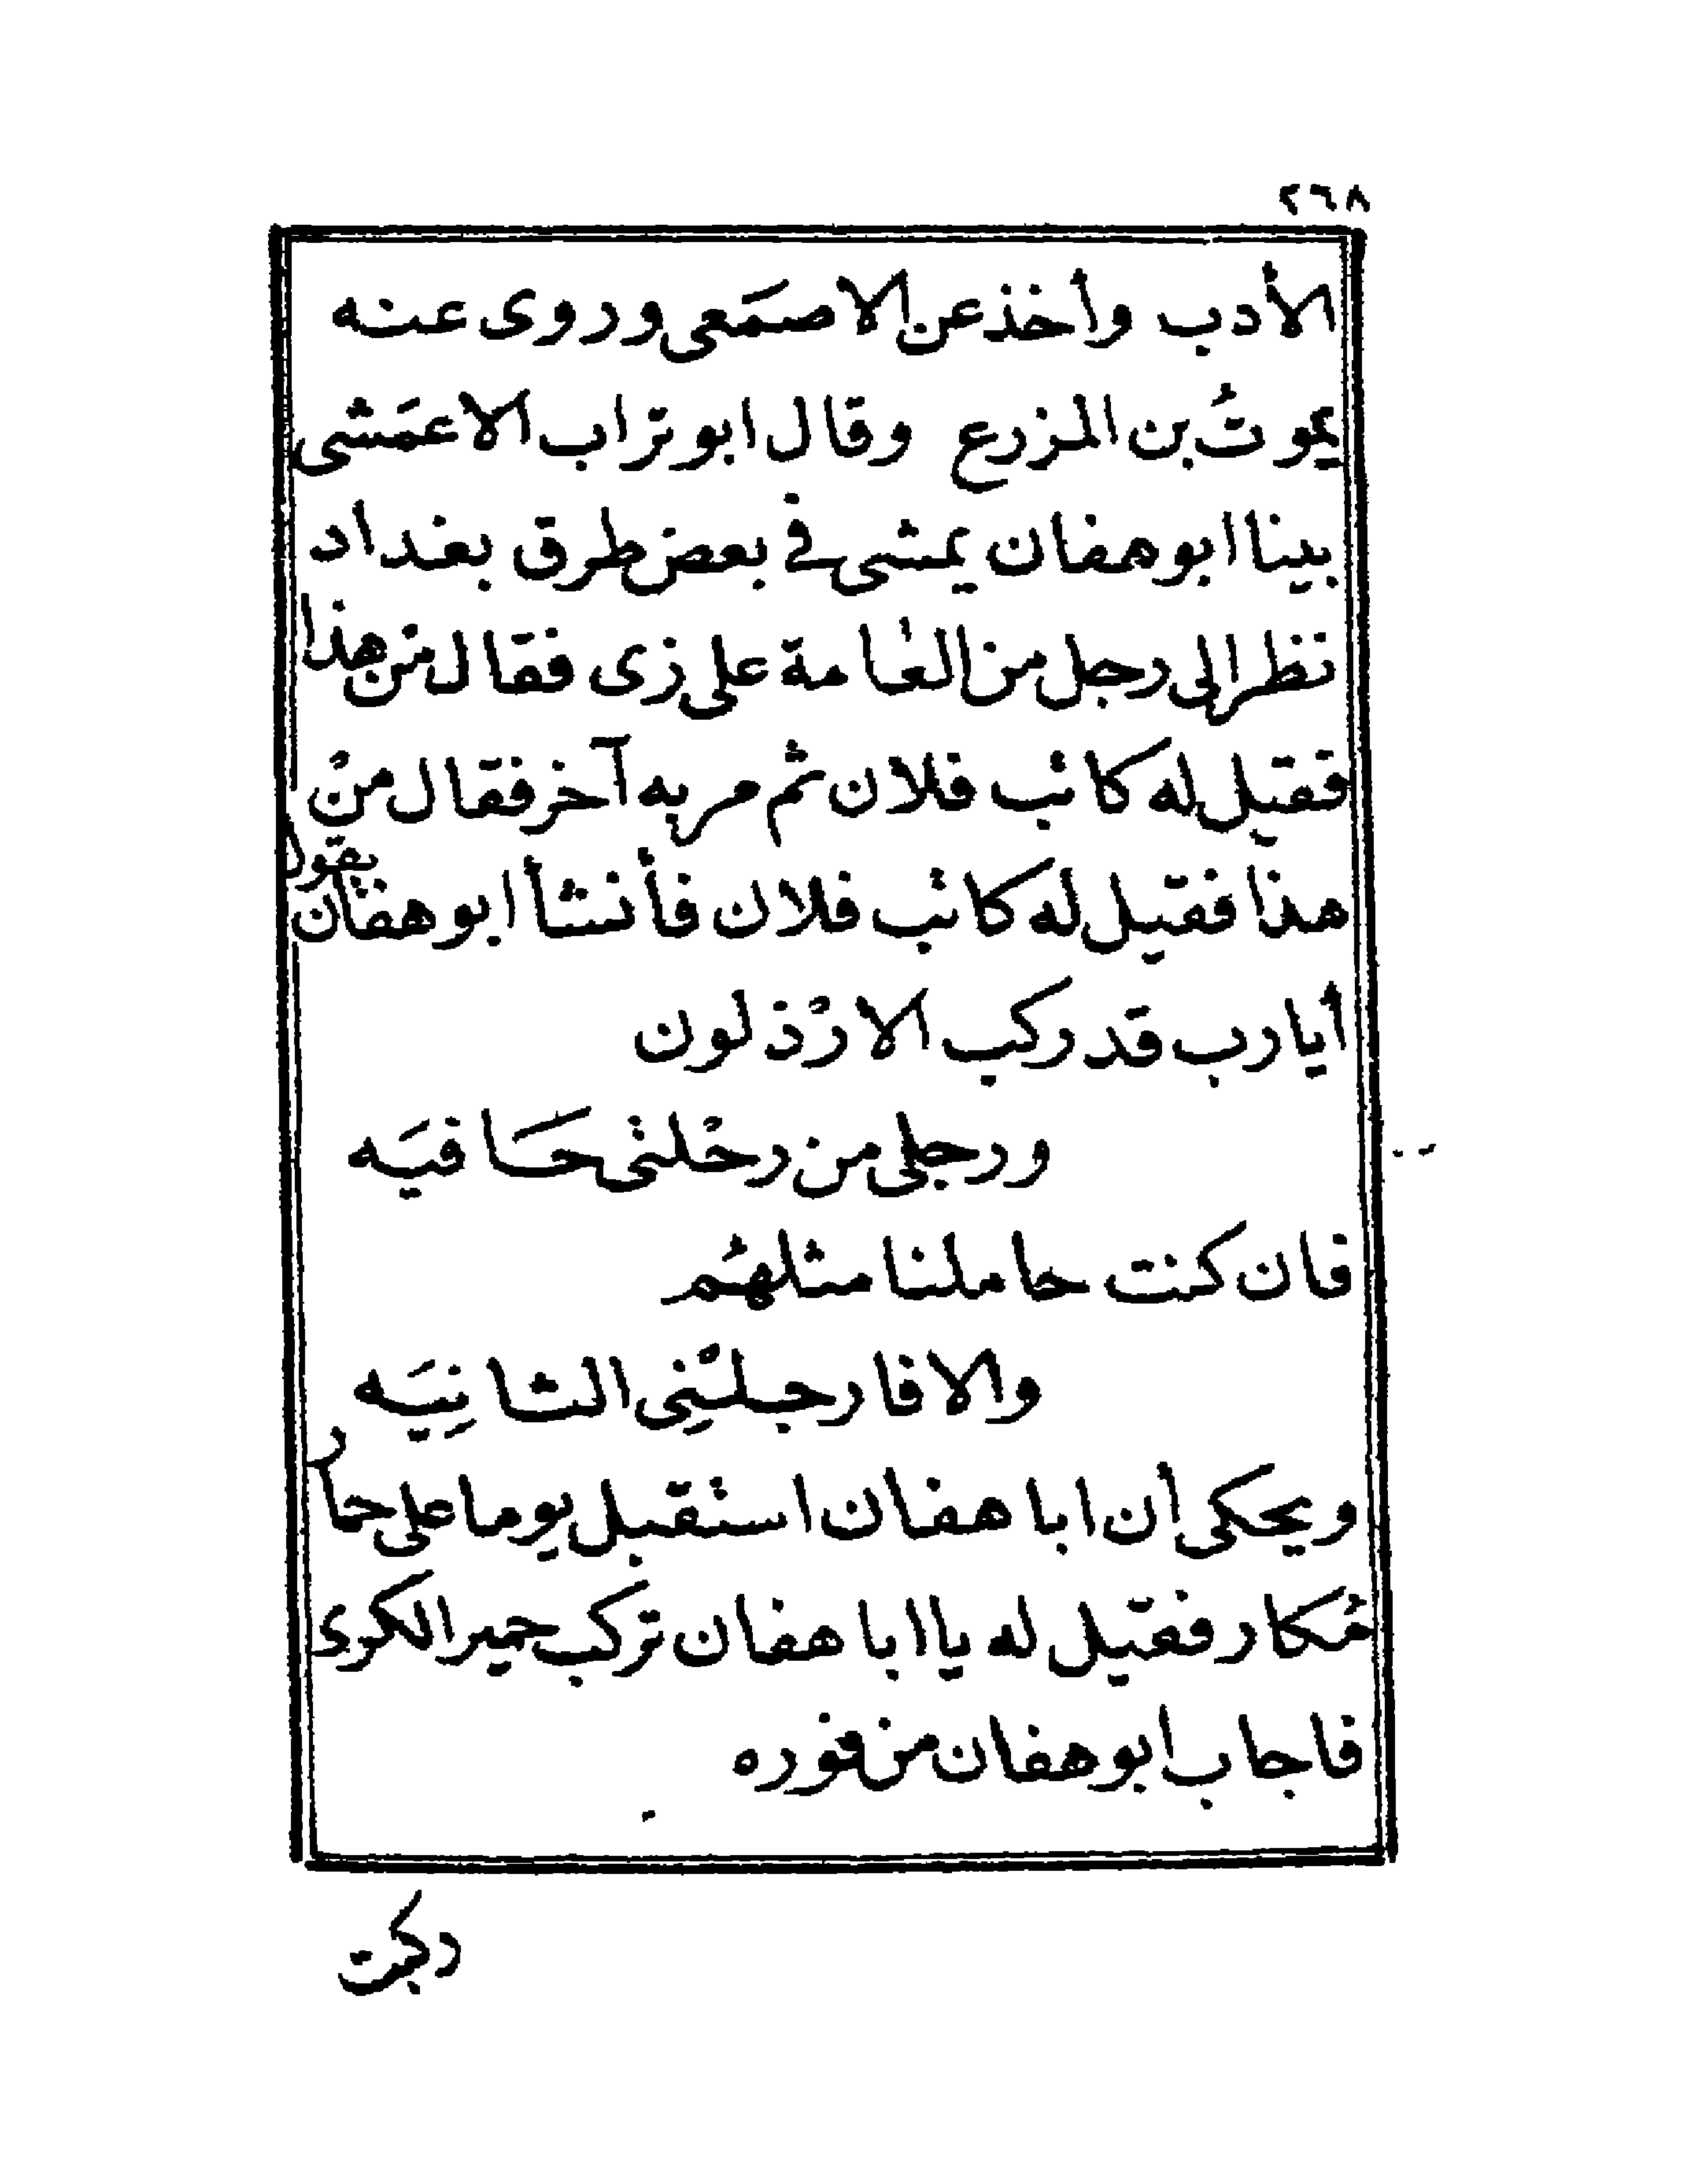 ٢٦٨
الأدب وأخذ عن الاصمَعى وروى عنه
يموتُ بن المزرع وقال ابو تراب الاعمَشى
بينا ابو هفان يمشى في بعض طرق بغداد
نظر الى رجل من العامة على زى فقال من هذا
فقيل له كاتب فلان ثم مر به آخر فقال منْ
هذا فقيل له كاتب فلان فأنشأ ابو هفان يقول
أيا رب قد ركب الارْذلون
ورجلى من رحْلتى حَافيَه
فان كنت حاملنا مثلهُم
والا فارجلْنِى الثانِيَه
ويحكى أن ابا هفان استقبل يوما على حمار
مُكار فقيل له يا ابا هفان تركب حمير الكرى
فاجاب ابو هفان من فوره
ركبت